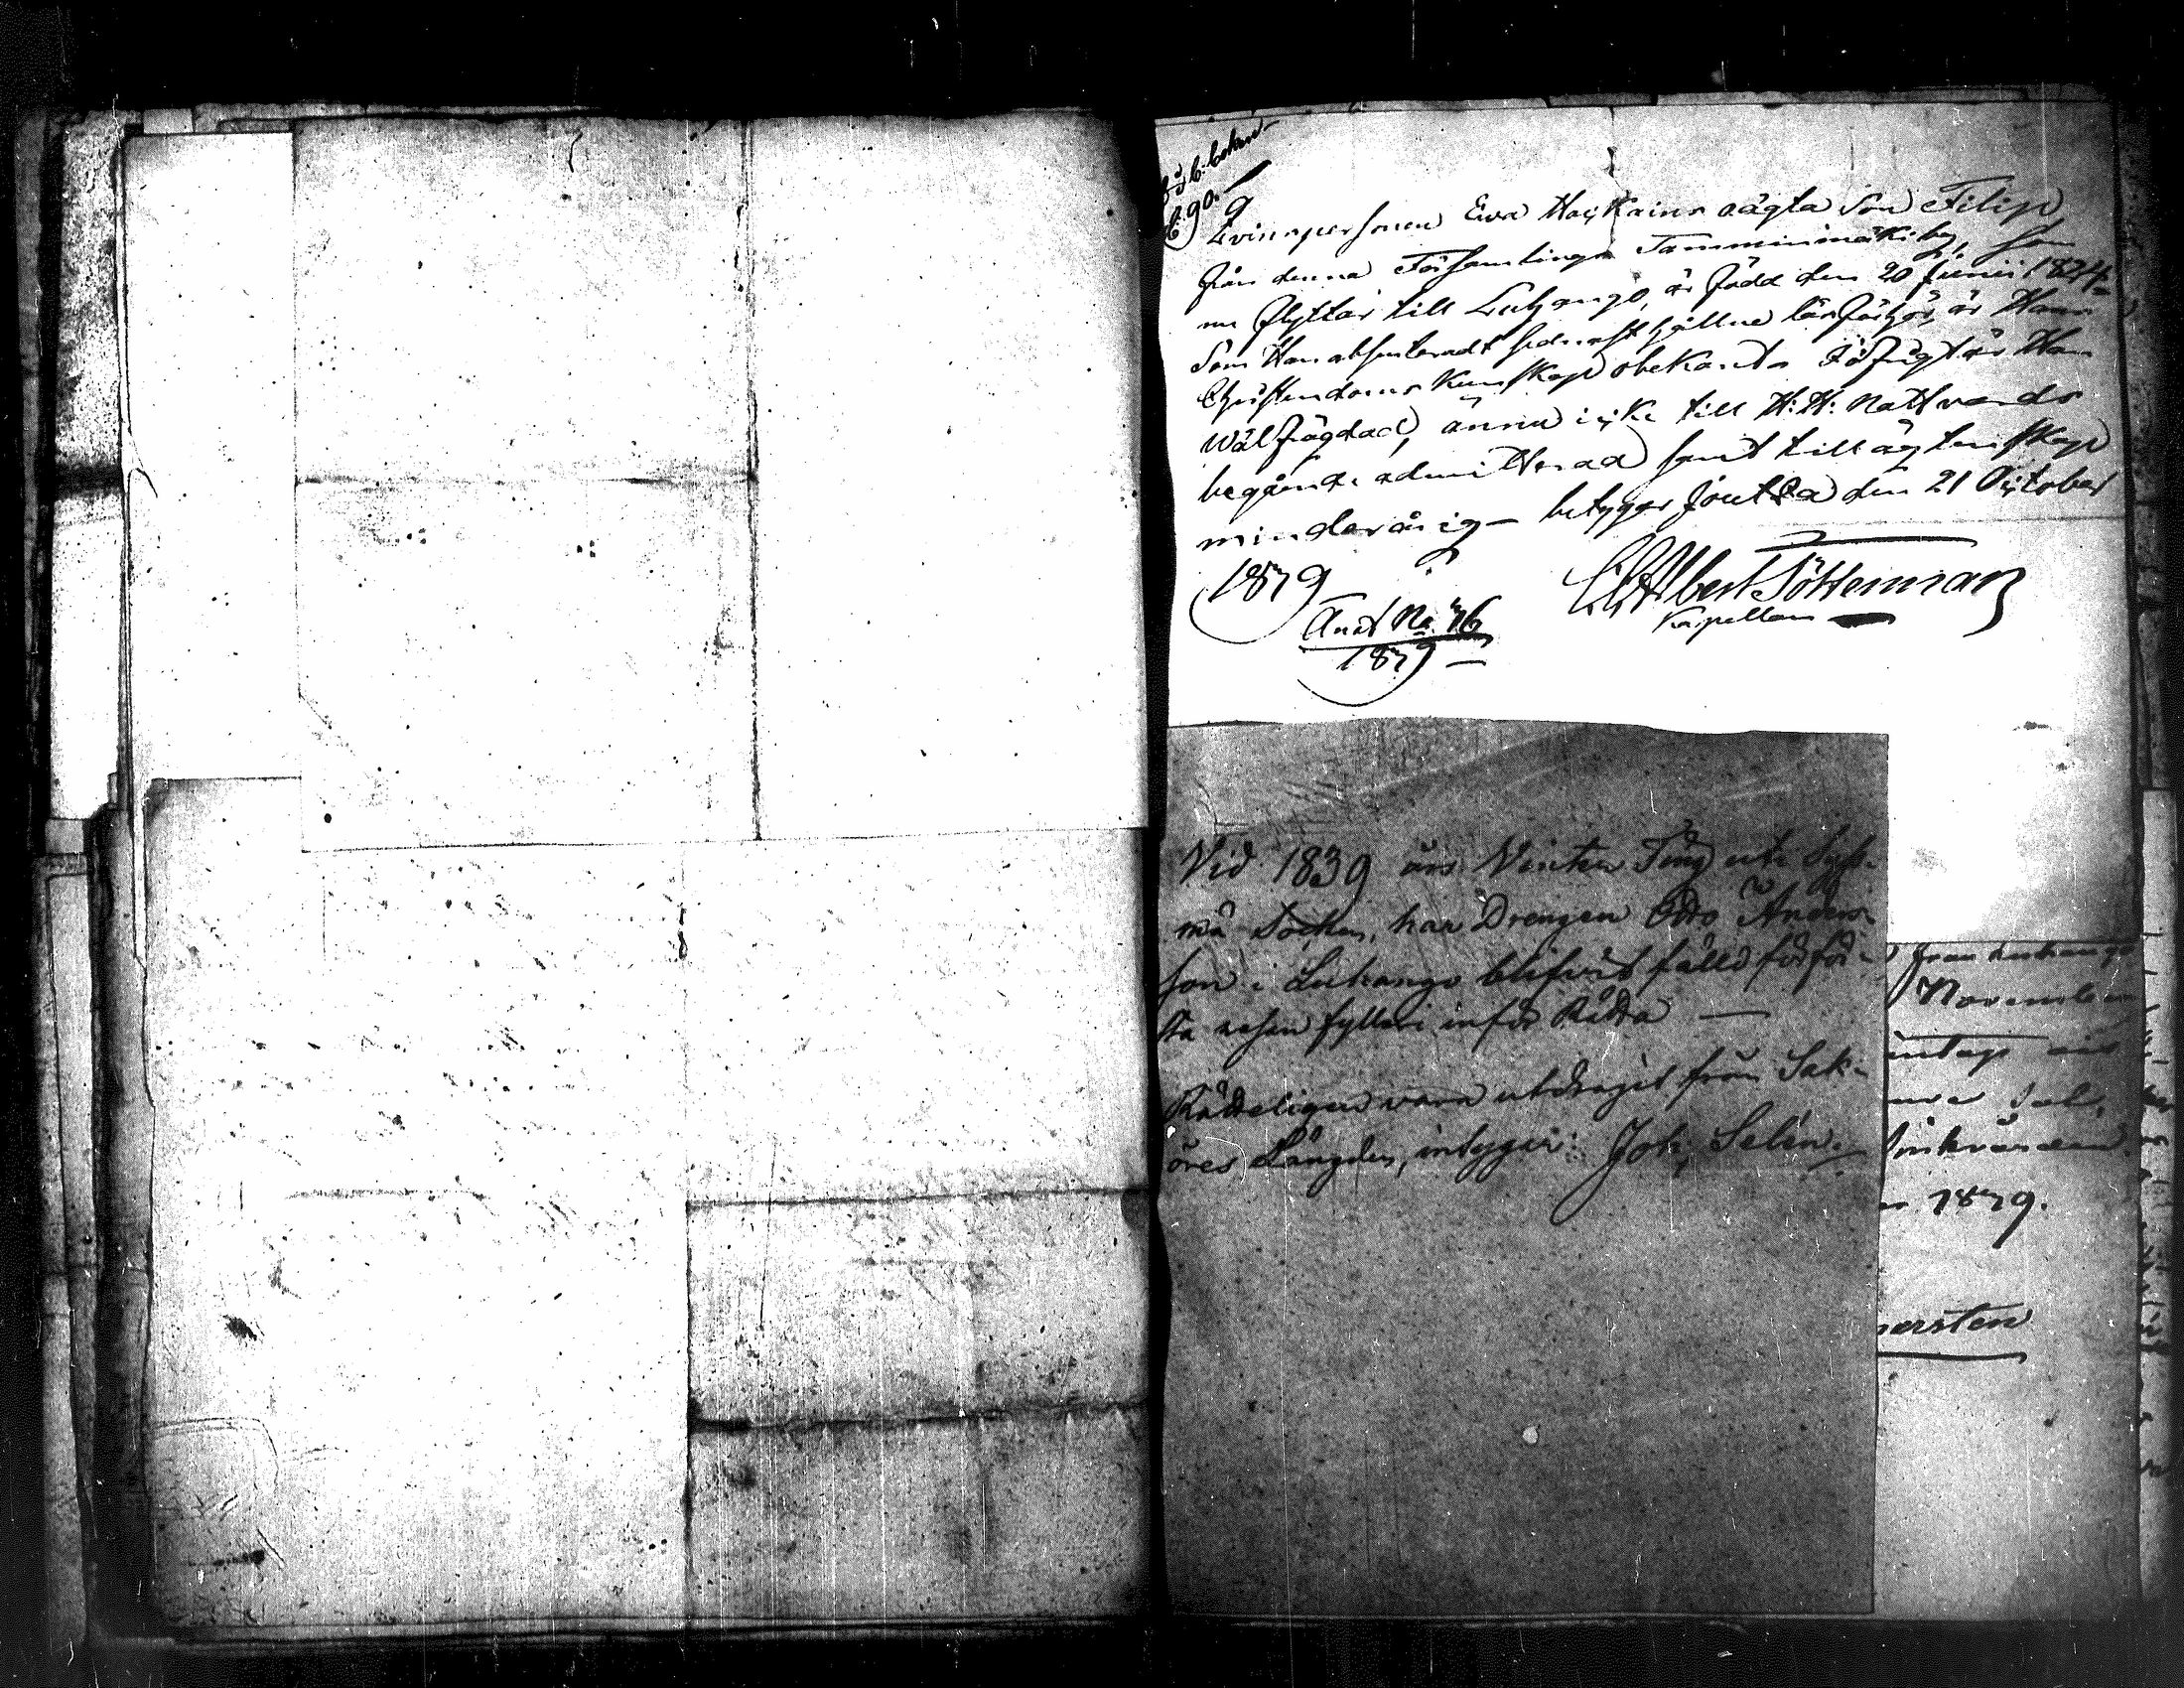 b: 90.
Qvinspersonen Ewa Hoikains oägta Son Filip
från denna Församlings Tamminmäki by, som
nu flyttar till Luhango, är född den 20 Junii 1824
Som Han absenteradt sednast hållne läsförhör, är Hans
Christendoms Kunskap obekant. Till frägd är Han
Wälfrägdad, ännu icke till H: H: Nattvards
begående admitterad samt till ägtenskap
minderårig — betygar Joutsa den 21 October
1839
Albert Töttermarz
Kapellan
Anat No. 46
1839
Vid 1839 års Vinter Ting uti Syss-
mä Socken, har Drengen Otto Anders-
son i Luhango blifvit fälld för för-
sta resan fylleri inför Rätta —
Rätteligen vara utdragit från Sak-
öres Längden, intygar: Joh. Selin.
från Luhango
November
1839.
ersten